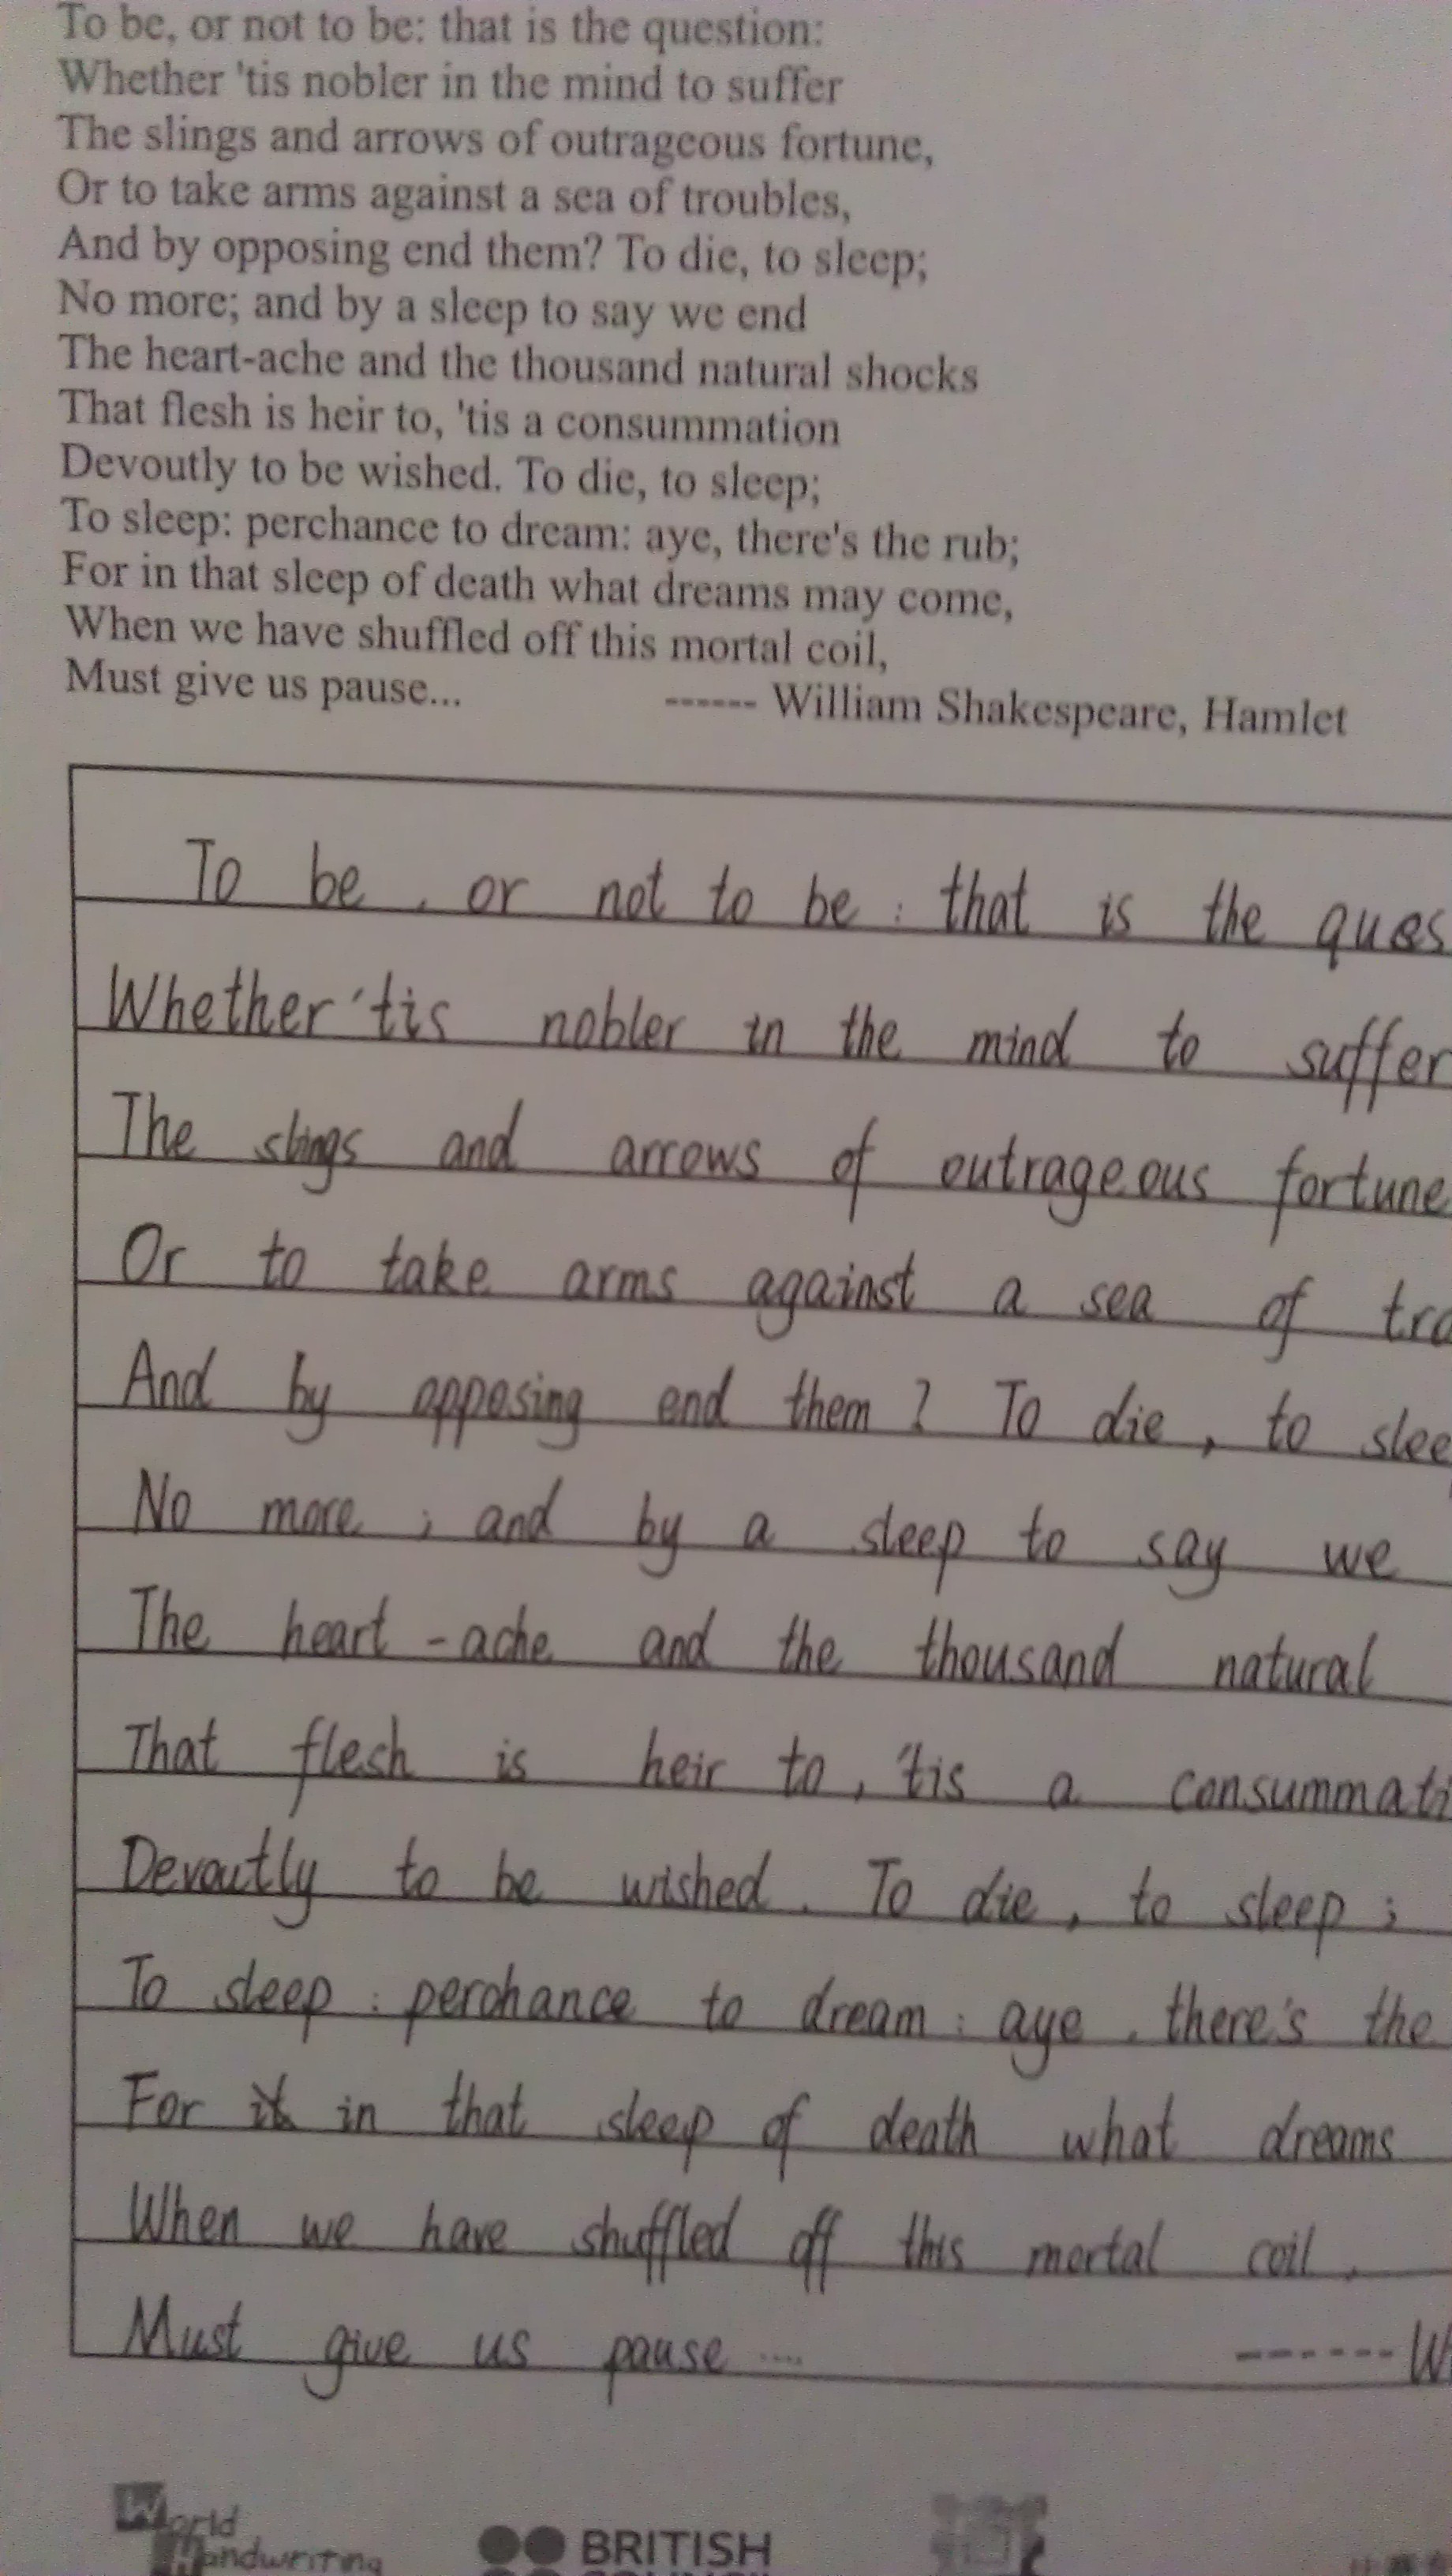 To be, or not to be: that is the question:
Whether 'tis nobler in the mind to suffer
The slings and arrows of outrageous fortune,
Or to take arms against a sea of troubles,
And by opposing end them? To die, to sleep;
No more; and by a sleep to say we end
The heart-ache and the thousand natural shocks
That flesh is heir to, 'tis a consummation
Devoutly to be wished. To die, to sleep;
To sleep: perchance to dream: aye, there's the rub;
For in that sleep of death what dreams may come,
When we have shuffled off this mortal coil,
Must give us pause... ------ William Shakespeare, Hamlet
To be, or not to be: that is the ques
Whether 'tis nobler in the mind to suffer
The slings and arrows of outrageous fortune
Or to take arms against a sea of tro
And by opposing end them? To die, to slee
No more; and by a sleep to say we
The heart-ache and the thousand natural
That flesh is heir to, 'tis a consummati
Devoutly to be wished. To die, to sleep;
To sleep: perchance to dream: aye, there's the
For it in that sleep of death what dreams
When we have shuffled off this mortal coil,
Must give us pause .... ------ Wi
World
Handwriting
BRITISH
COUNCIL